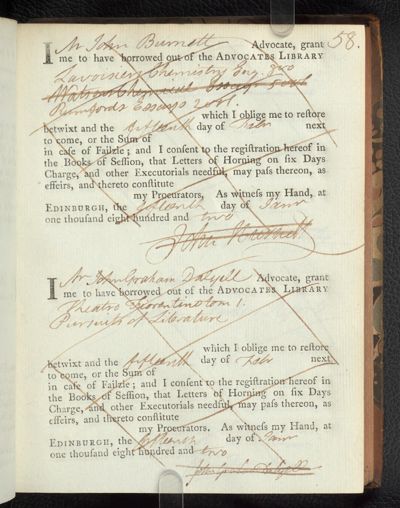 58.
I Mr John Burnett Advocate, grant
me to have borrowed out of the ADVOCATES LIBRARY
Lavoisiers Chemistry Eng. 8vo
Watson Chemical Essays 5 vol
Rumfords Essays 2 vol.
which I oblige me to reſtore
betwixt and the fifteenth day of Febr next
to come, or the Sum of
in caſe of Failzie; and I conſent to the regiſtration hereof in
the Books of Seſſion, that Letters of Horning on ſix Days
Charge, and other Executorials needful, may paſs thereon, as
effeirs, and thereto conſtitute
my Procurators. As witneſs my Hand, at
EDINBURGH, the fifteenth day of Janr
one thouſand eight hundred and two
John Burnett
I Mr John Graham Dalyell Advocate, grant
me to have borrowed out of the ADVOCATES LIBRARY
Theatro Fiorentino tom 1.
Pursuits of Literature
which I oblige me to reſtore
betwixt and the fifteenth day of Febr next
to come, or the Sum of
in caſe of Failzie; and I conſent to the regiſtration hereof in
the Books of Seſſion, that Letters of Horning on ſix Days
Charge, and other Executorials needful, may paſs thereon, as
effeirs, and thereto conſtitute
my Procurators. As witneſs my Hand, at
EDINBURGH, the fifteenth day of Janr
one thouſand eight hundred and two
John Graham Dalyell